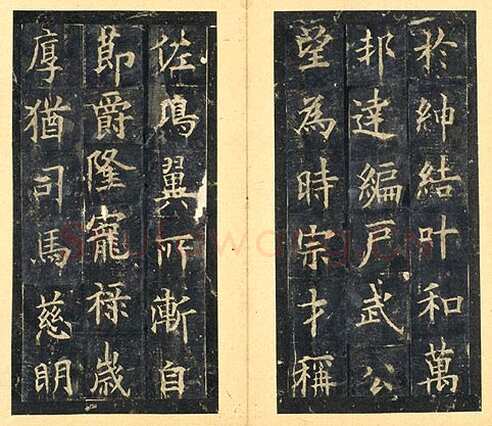 於紳結叶和萬
邦達編戶武公
望為時宗才稱
佐鳴翼所漸自
節爵隆寵祿歲
厚猶司馬慈明